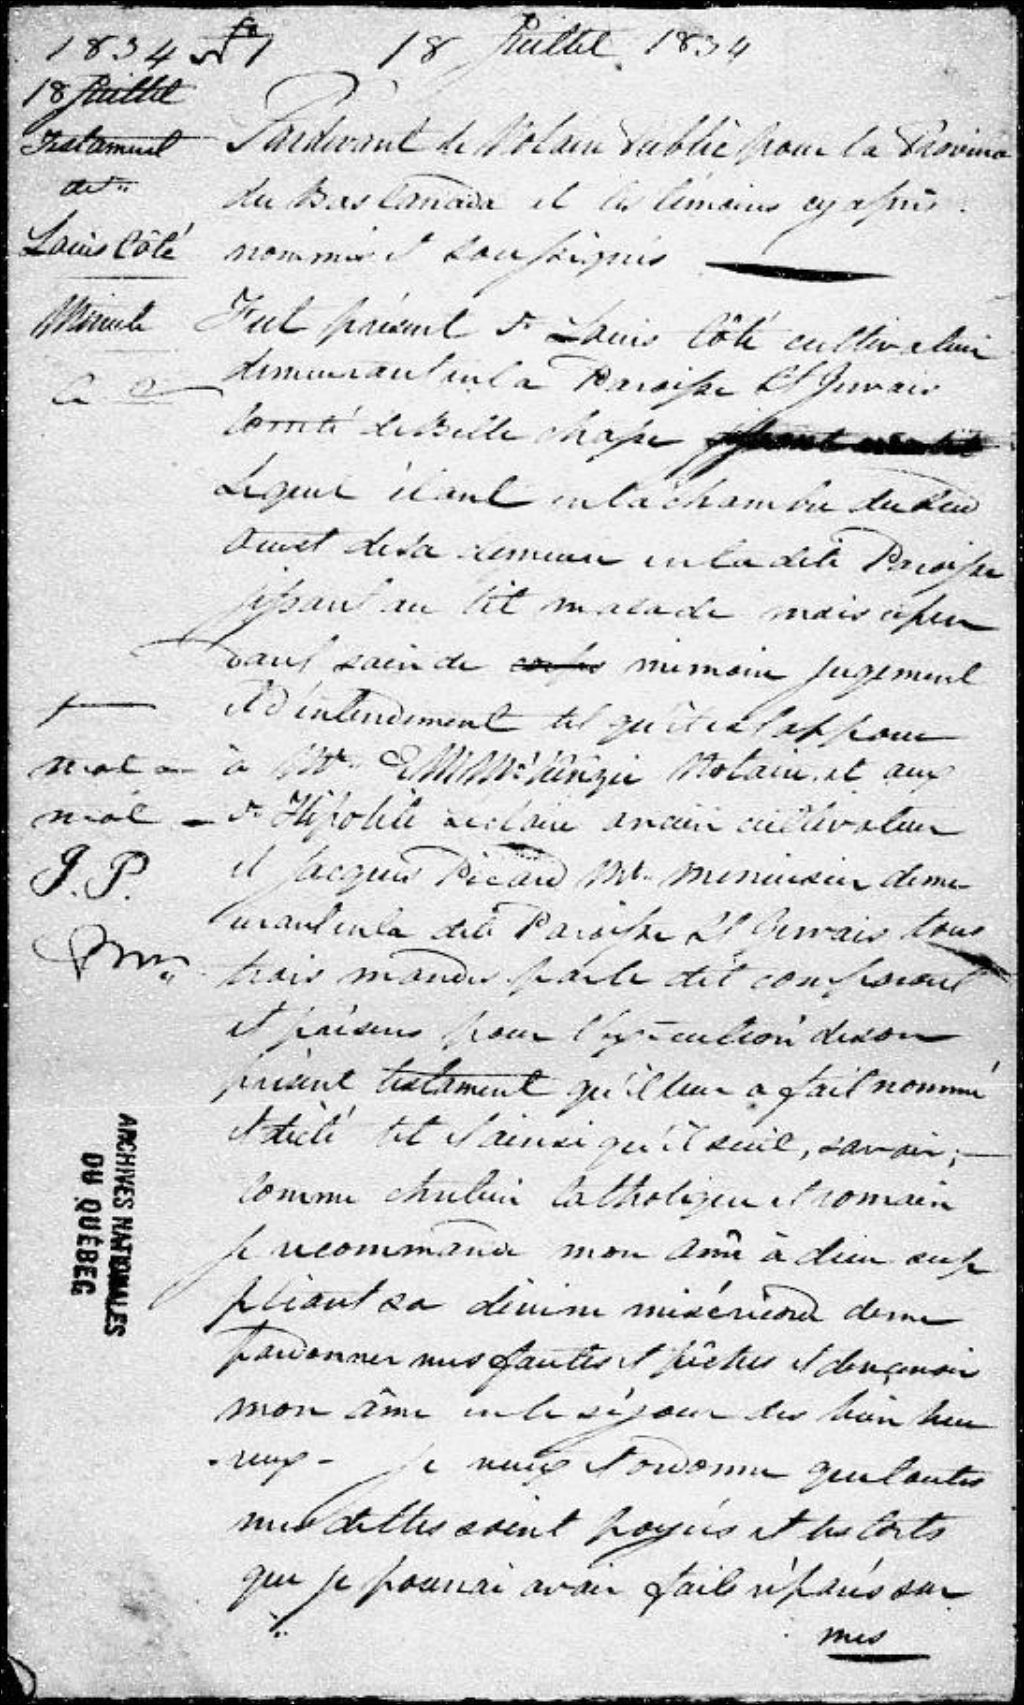 1834 18 Juillet 1834
18 Juillet
Testament
de
Louis Côté
Minute
Pardevant le Notaire Public pour la Province
du Bas Canada et les témoins cy après
nommés et soussignés
Fut présent Sr Louis Côté cultivateur
demeurant en la Paroisse St Gervais
Comté de Belle chasse
Lequel étant en la chambre du Sud
Ouest de sa demeure en la dite Paroisse
gissant au lit malade mais cepen
dant sain de corps mémoire jugement
et d'entendement tel qu'il est apparu
mot
à Mr McKenzie Notaire et aux
mot
Sr Hipolite Leclaire ancien cultivateur
J. P.
et Jacques Picard Mtre Menuisier deme
urant en la dite Paroisse St Gervais tous
trois mandés par le dit comparant
et présens pour l'exécution de son
présent testament qu'il leur a fait nommé
et dicté tel et ainsi qu'il suit, savoir ; —
Comme chretien Catholique et romain
je recommande mon âme à dieu sup
pliant sa divine miséricorde de me
pardonner mes fautes et pêchés et de reçevoir
mon âme en le séjour des bien heu
-reux - Je veux et ordonne que toutes
mes dettes soient payées et les torts
que je pourrai avoir faits réparés sur
mes
ARCHIVES NATIONALES
DU QUÉBEC